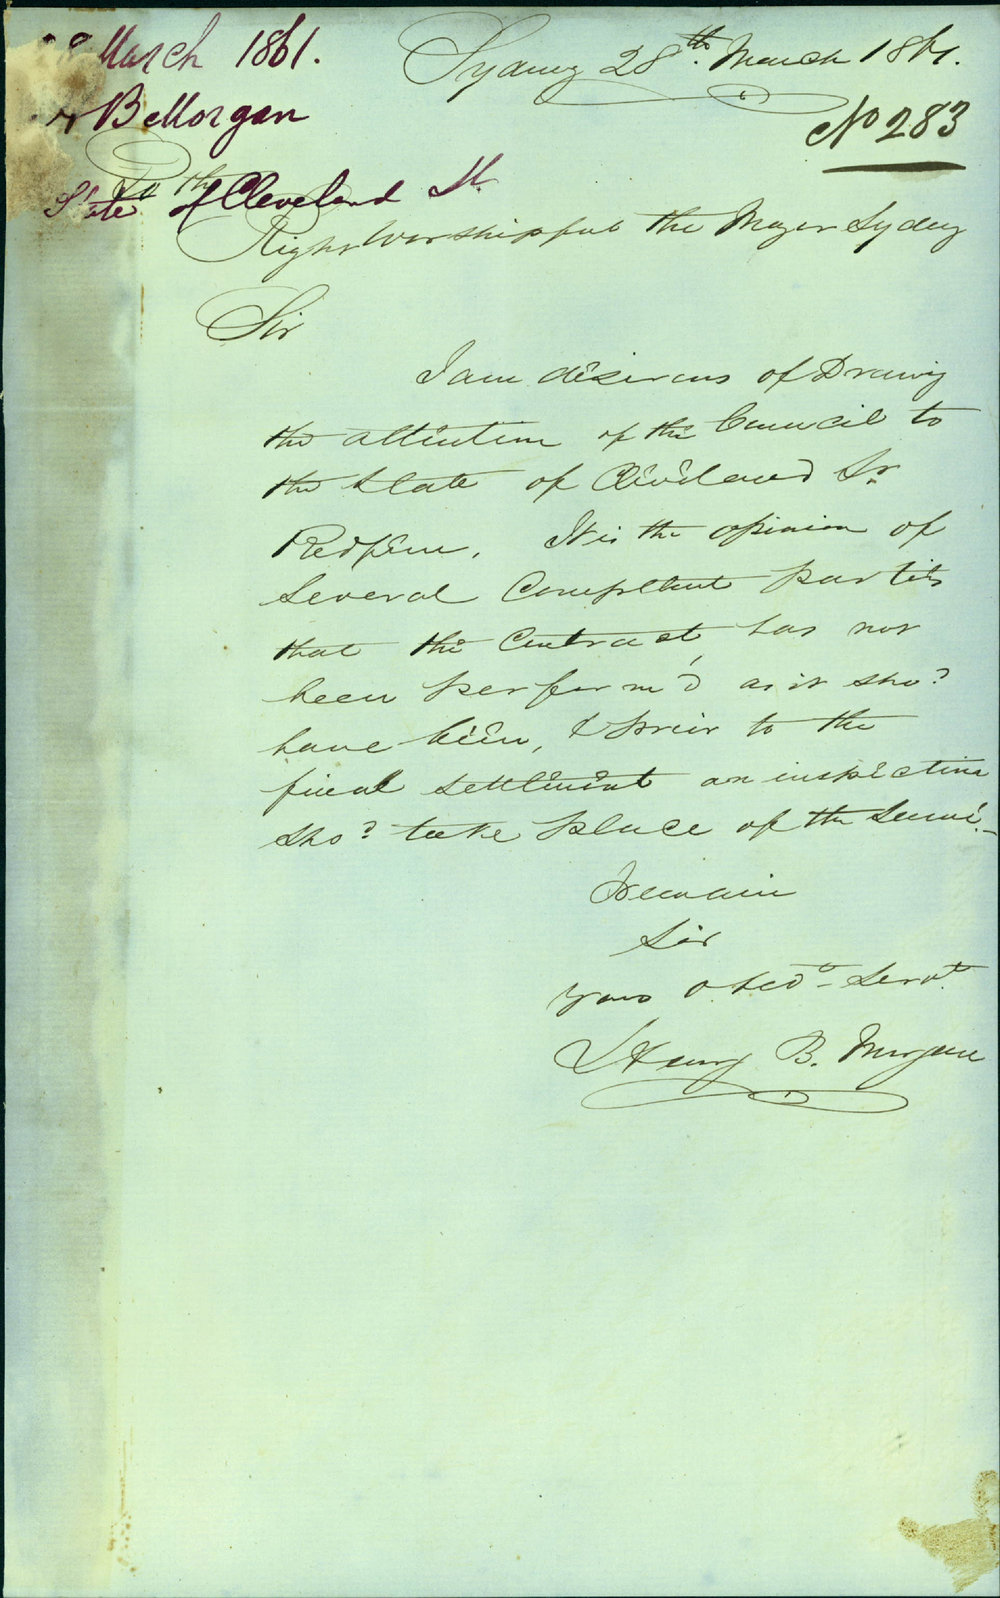 28 March 1861.
Sydney 28th. March 1861.
No 283
H B Morgan
To the
State of Cleveland St
Right Worshipful the Mayor Sydney
Sir
I am desirous of Drawing
the attention of the Council to
the State of Cleveland St.
Redfern. It is the opinion of
several Competent parties
that the Contract, has not
been perform'd as it shod
have been, & prior to the
final settlement an inspection
shod take place of the same.
I remain
Sir
Yours Obedt. Servt.
Henry B. Morgan